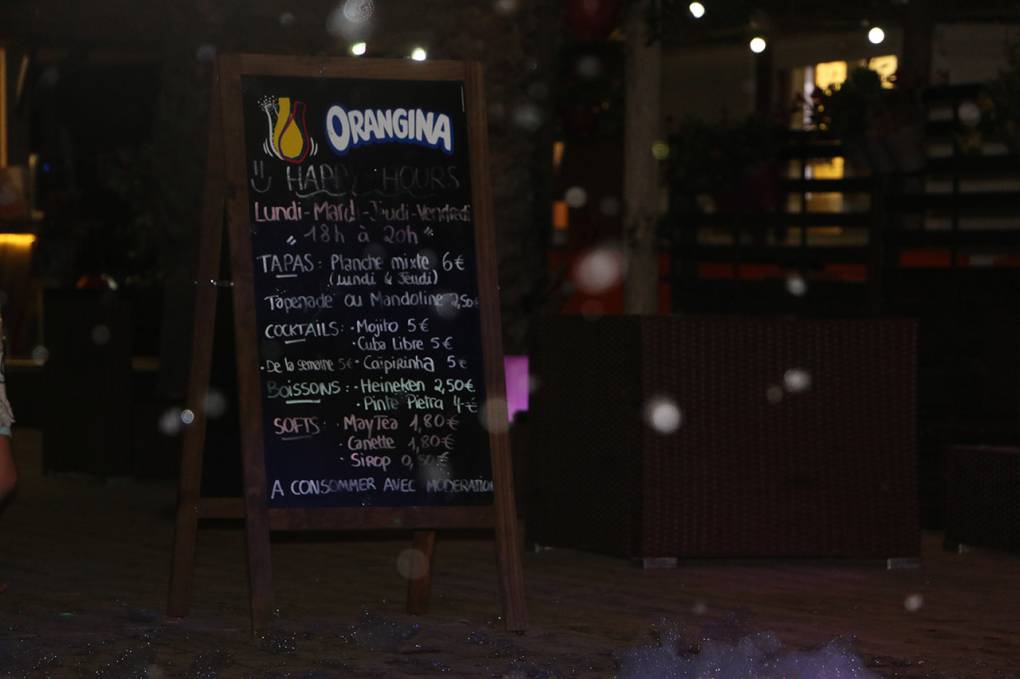 ORANGINA
HAPPY HOURS
Lundi - Mardi - Jeudi - Vendredi
" 18h à 20h "
TAPAS : Planche mixte 6€
(Lundi & Jeudi)
Tapenade ou Mandoline 2,50
COCKTAILS : · Mojito 5€
· Cuba Libre 5€
· De la semaine 5€ · Caïpirinha 5€
BOISSONS : · Heineken 2,50€
· Pinte Pietra 4€
SOFTS : · MayTea 1,80€
· Canette 1,80€
· Sirop 0,50€
A CONSOMMER AVEC MODERATION